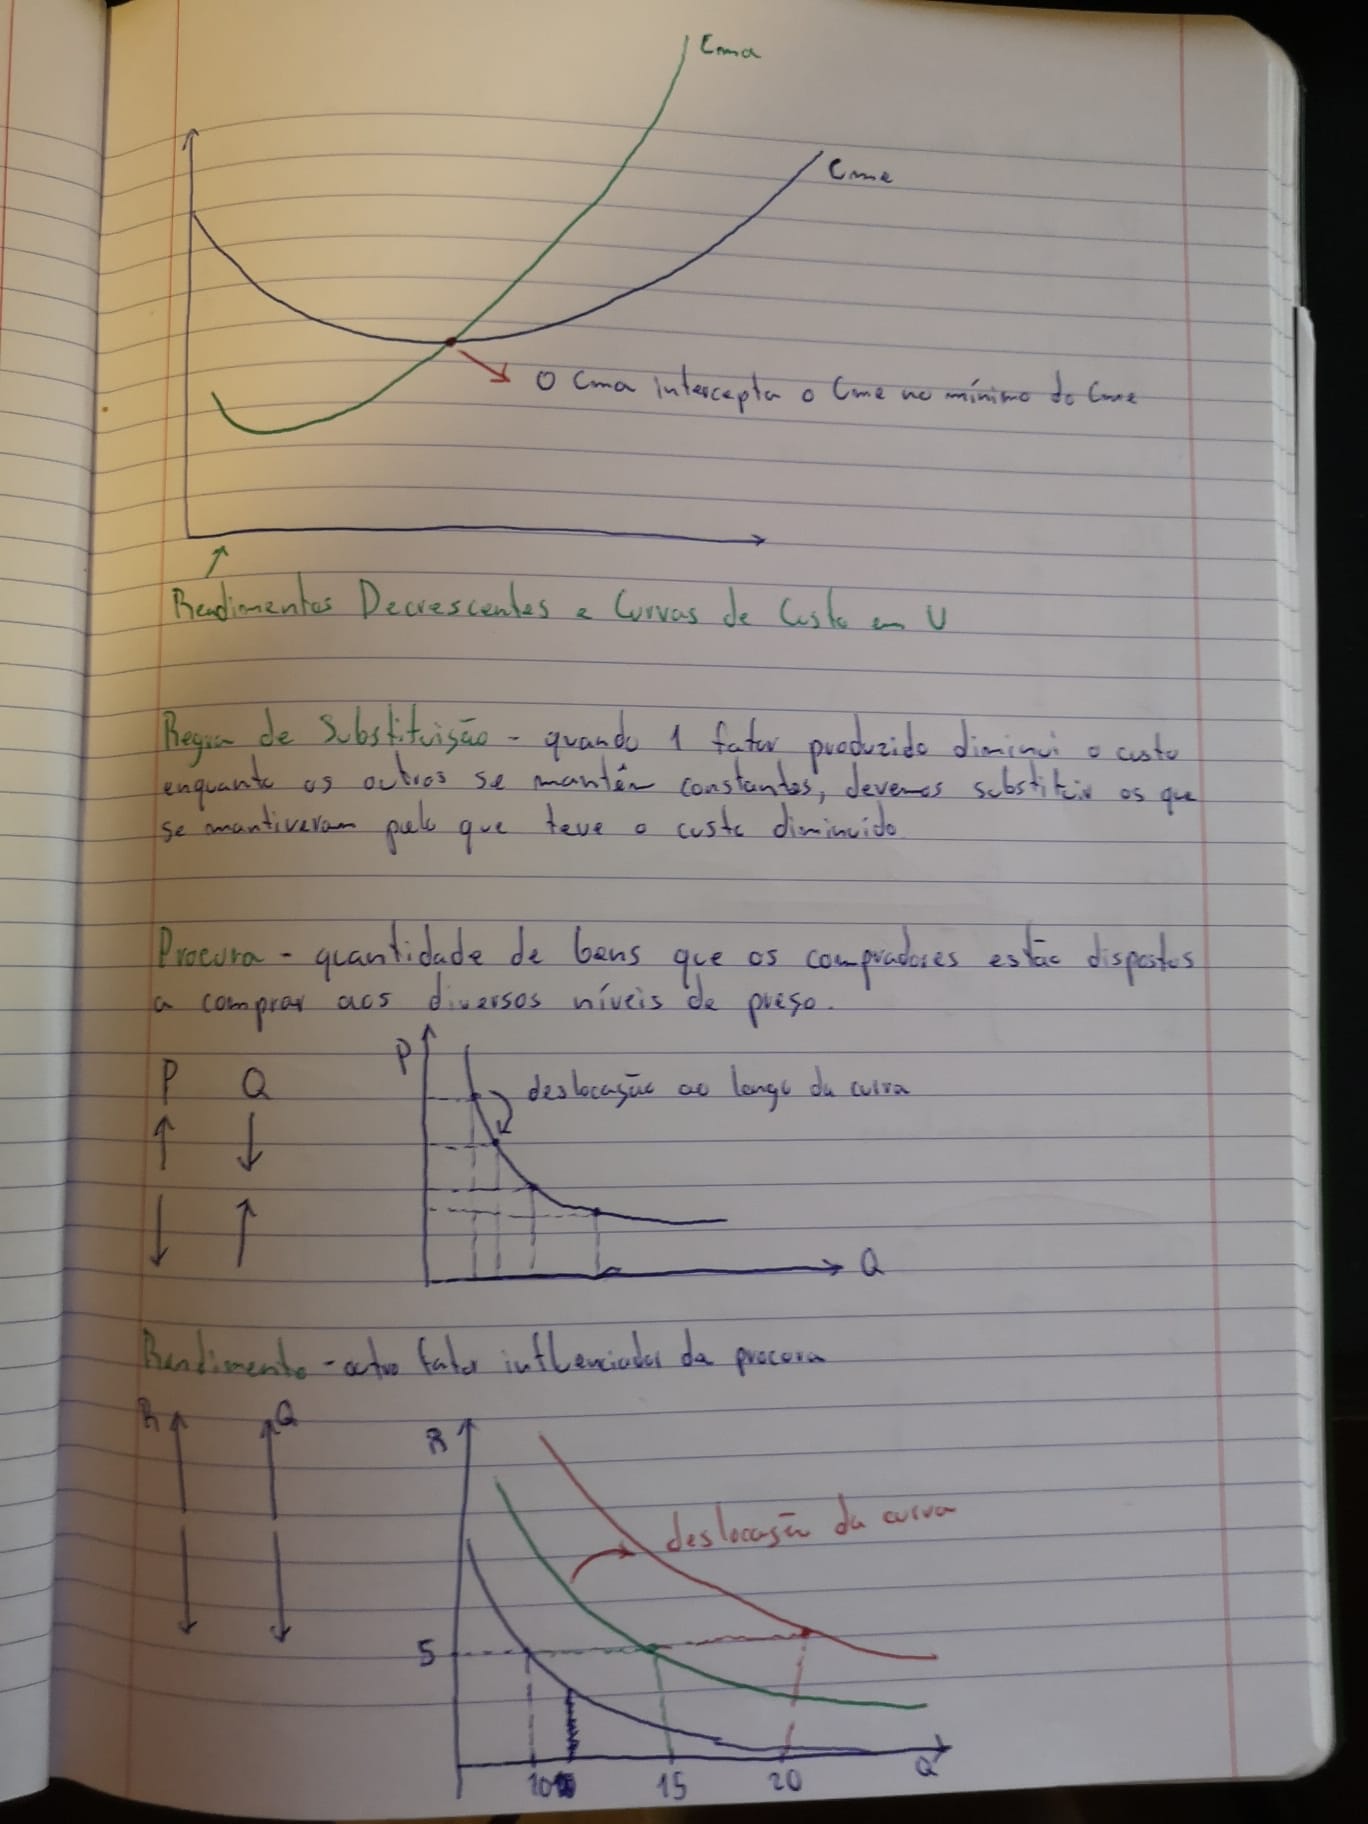 Cma
Cme
O Cma intercepta o Cme no mínimo do Cme
Rendimentos Decrescentes e Curvas de Custo em U
Regra de Substituição - quando 1 fator produzido diminui o custo
enquanto os outros se mantêm constantes, devemos substituir os que
se mantiveram pelo que teve o custo diminuido
Procura - quantidade de bens que os compradores estão dispostos
a comprar aos diversos níveis de preço.
P Q
P
deslocação ao longo da curva
Q
Rendimento - outro fator influenciador da procura
R Q
R
deslocação da curva
5
10 15 20 Q